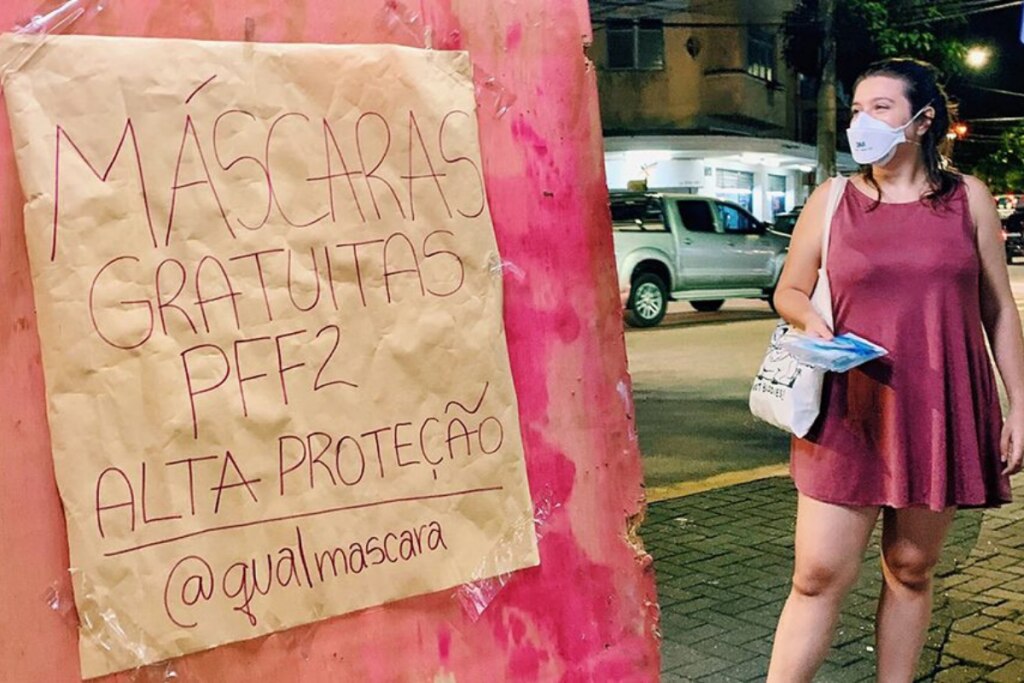 MÁSCARAS
GRATUITAS
PFF2
ALTA PROTEÇÃO
@qualmascara